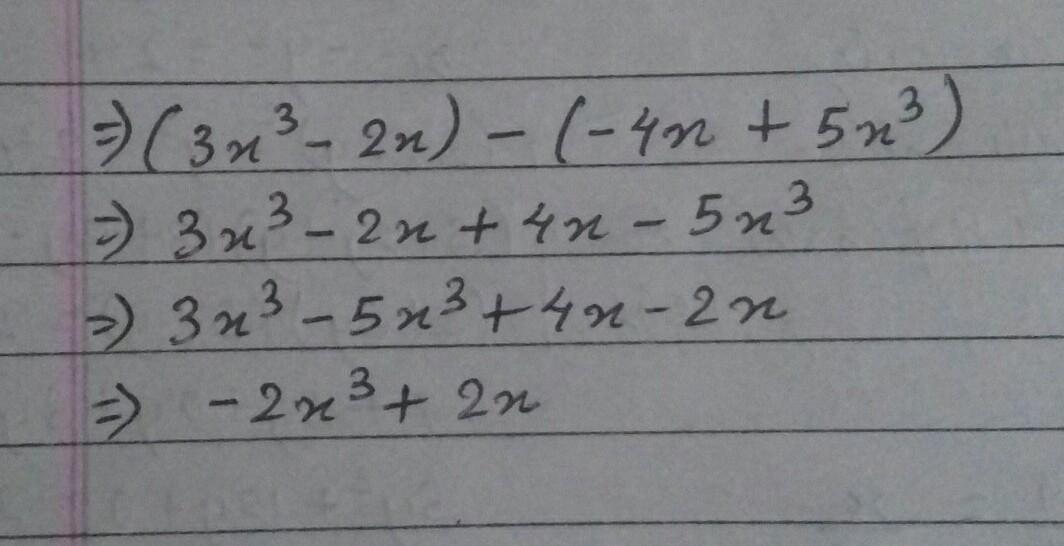 ⇒ (3x³ - 2x) - (-4x + 5x³)
⇒ 3x³ - 2x + 4x - 5x³
⇒ 3x³ - 5x³ + 4x - 2x
⇒ -2x³ + 2x